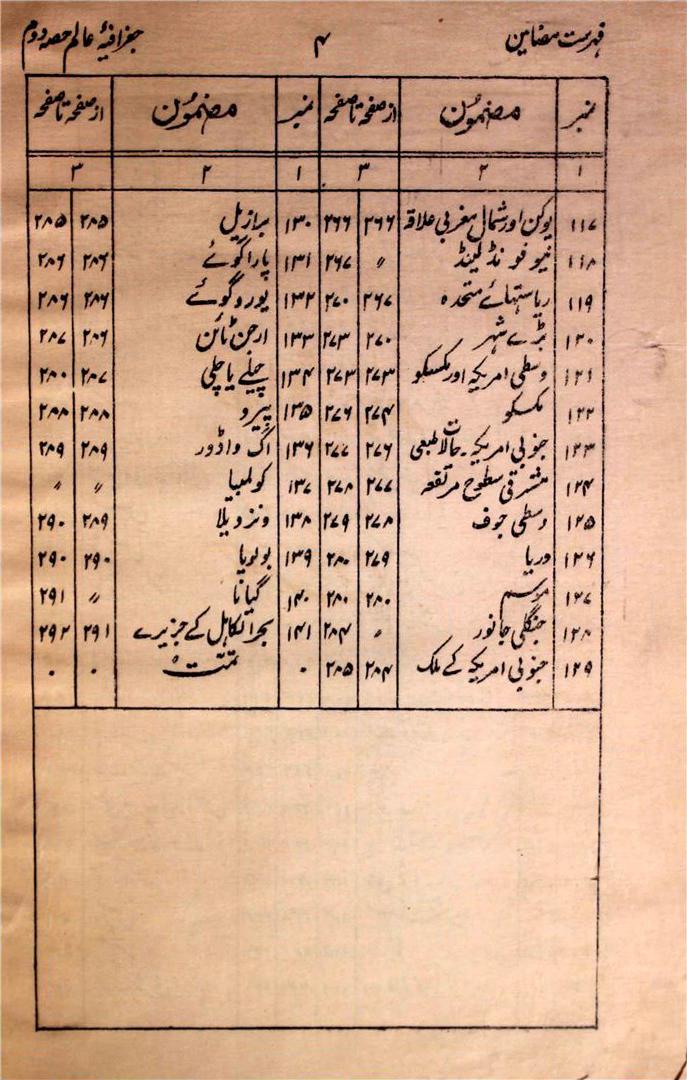 فہرست مضامین ۴ جغرافیۂ عالم حصہ دوم
نمبر مضمون از صفحہ تا صفحہ نمبر مضمون از صفحہ تا صفحہ
۱ ۲ ۳ ۱ ۲ ۳
۱۱۷ یوکن اور شمال مغربی علاقہ ۲۶۶ ۲۶۶ ۱۳۰ برازیل ۲۸۵ ۲۸۵
۱۱۸ نیو فونڈ لینڈ 〃 ۲۶۷ ۱۳۱ پاراگوئے ۲۸۶ ۲۸۶
۱۱۹ ریاستہائے متحدہ ۲۶۷ ۲۷۰ ۱۳۲ یوروگوئے ۲۸۶ ۲۸۶
۱۲۰ بڑے شہر ۲۷۰ ۲۷۳ ۱۳۳ ارجن ٹائن ۲۸۶ ۲۸۷
۱۲۱ وسطی امریکہ اور مکسکو ۲۷۳ ۲۷۳ ۱۳۴ چلے یا چلی ۲۸۷ ۲۸۰
۱۲۲ مکسکو ۲۷۴ ۲۷۶ ۱۳۵ پیرو ۲۸۸ ۲۸۸
۱۲۳ جنوبی امریکہ۔ حالات طبعی ۲۷۶ ۲۷۷ ۱۳۶ اک واڈور ۲۸۹ ۲۸۹
۱۲۴ مشرقی سطوح مرتفعہ ۲۷۷ ۲۷۸ ۱۳۷ کولمبیا 〃 〃
۱۲۵ وسطی جوف ۲۷۸ ۲۷۹ ۱۳۸ ونزویلا ۲۸۹ ۲۹۰
۱۲۶ دریا ۲۷۹ ۲۸۰ ۱۳۹ بولویا ۲۹۰ ۲۹۰
۱۲۷ موسم ۲۸۰ ۲۸۰ ۱۴۰ گیانا 〃 ۲۹۱
۱۲۸ جنگلی جانور 〃 ۲۸۴ ۱۴۱ بحر الکاہل کے جزیرے ۲۹۱ ۲۹۲
۱۲۹ جنوبی امریکہ کے ملک ۲۸۴ ۲۸۵ ۰ تمت ۰ ۰